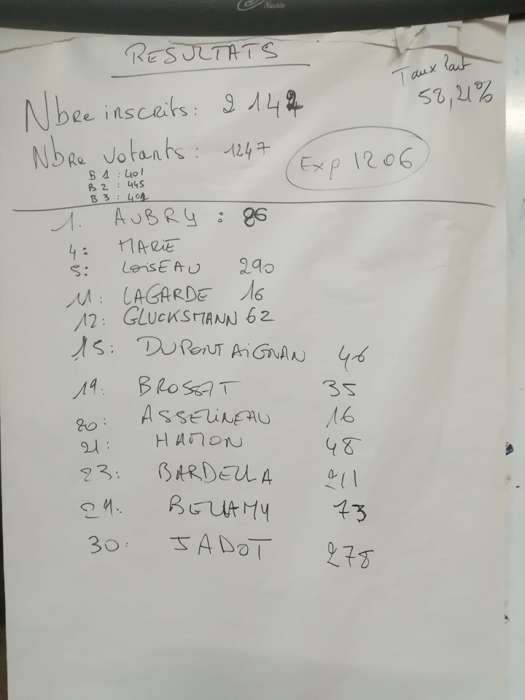 RESULTATS
Taux Part
58,21%
Nbre inscrits: 2 142
Nbre votants: 1247
Exp 1206
B 1 : 401
B 2 : 445
B 3 : 401
1. AUBRY : 86
4: MARIE
5: LOISEAU 290
11: LAGARDE 16
12: GLUCKSMANN 62
15: DUPONT AIGNAN 46
19: BROSSAT 35
20: ASSELINEAU 16
21: HAMON 48
23: BARDELLA 211
29. BELLAMY 73
30: JADOT 278